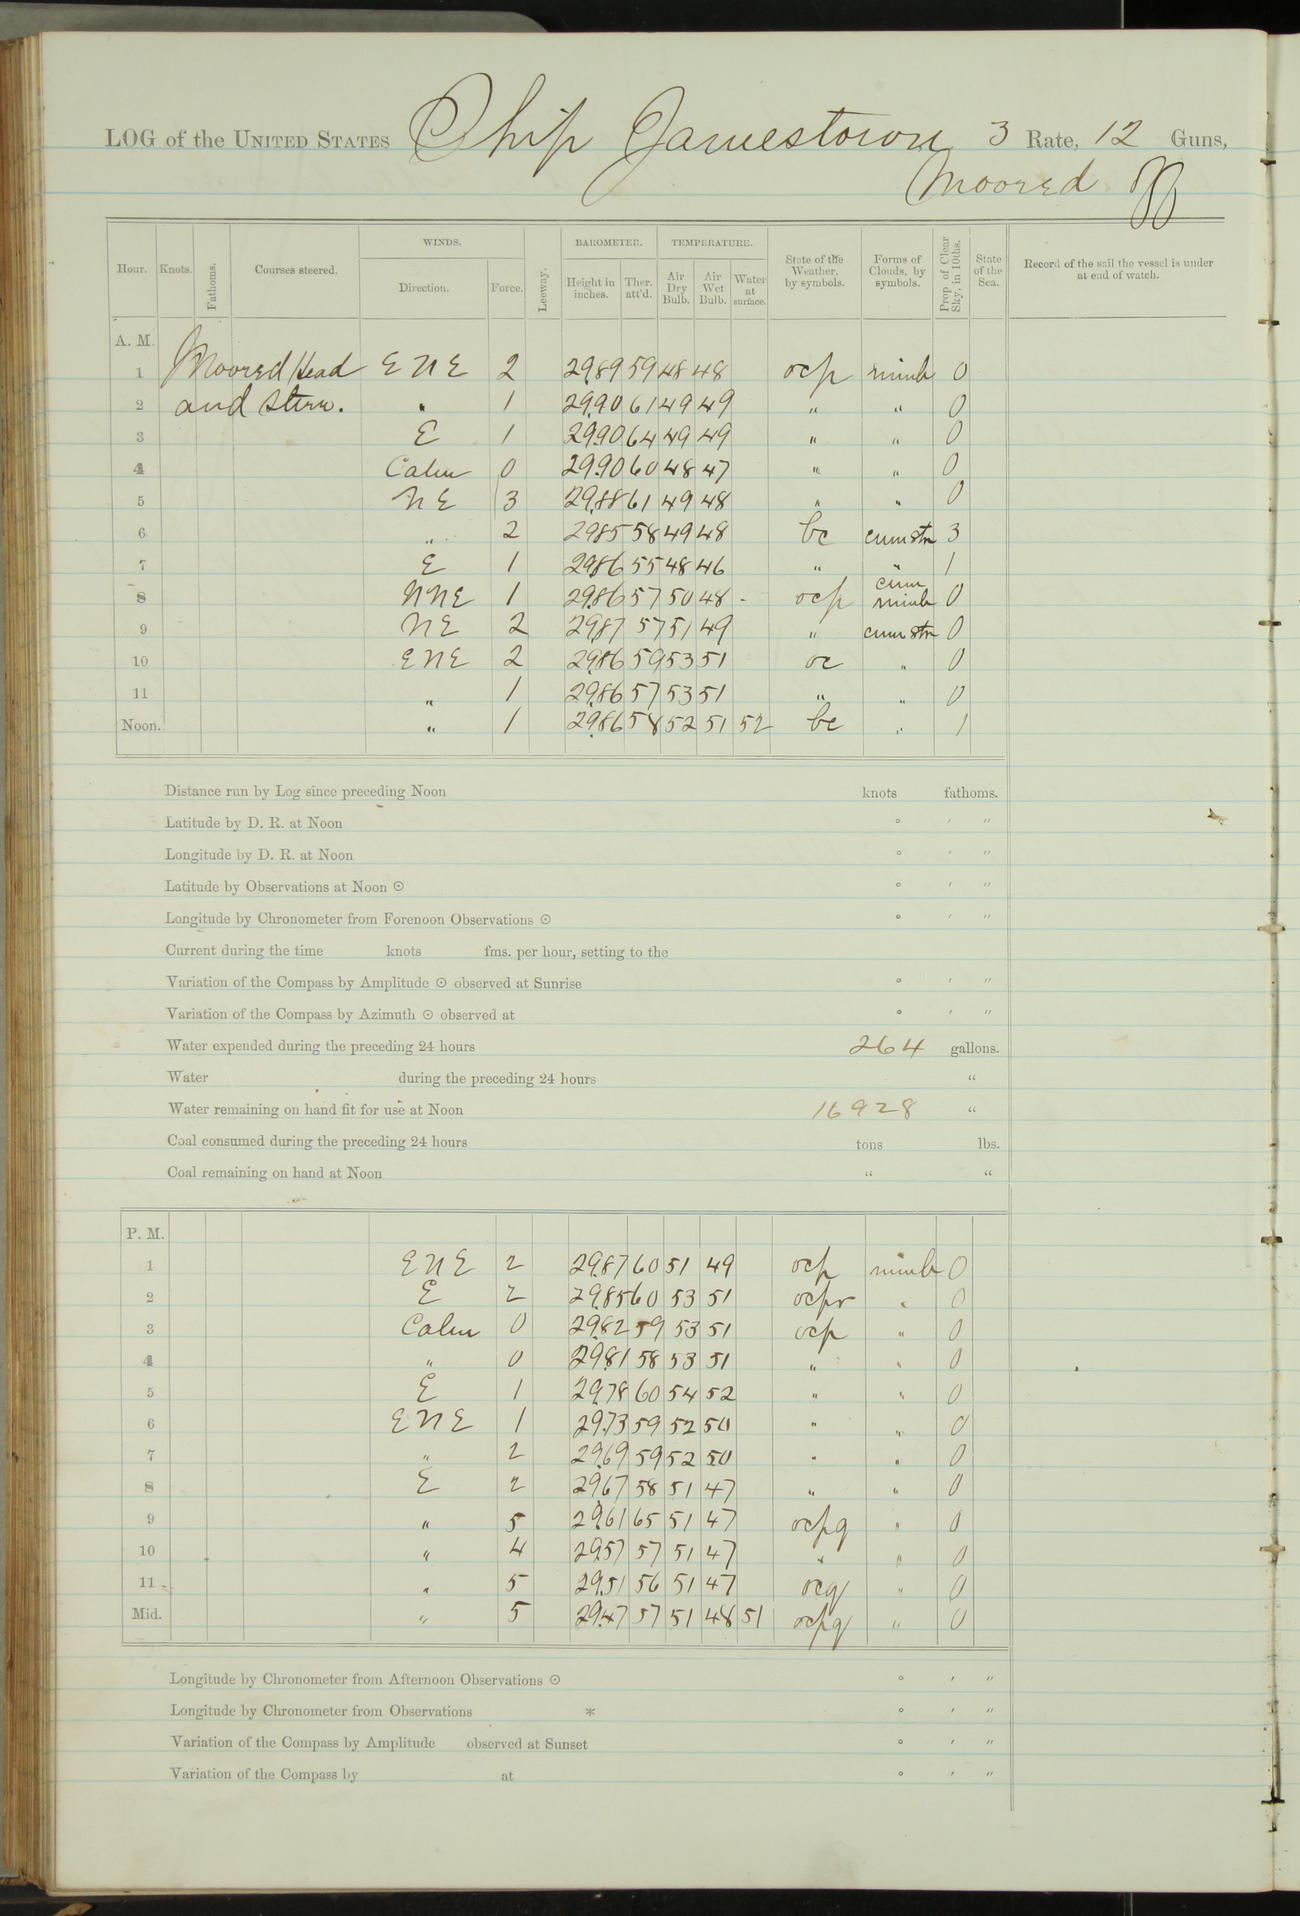 LOG of the UNITED STATES Ship Jamestown 3 Rate, 12 Guns,
Moored off
Hour. Knots. Fathoms. Courses steered. WINDS. Direction. Force. Leeway. BAROMETER. Height in inches. Ther. att'd. TEMPERATURE. Air Dry Bulb. Air Wet Bulb. Water at surface. State of the Weather, by symbols. Forms of Clouds, by symbols. Prop. of Clear Sky, in 10ths. State of the Sea. Record of the sail the vessel is under at end of watch.
A. M.
1 Moored Head ENE 2 29.89 59 48 48 ocp nimb 0
2 and Stern. " 1 29.90 61 49 49 " " 0
3 E 1 29.90 64 49 49 " " 0
4 Calm 0 29.90 60 48 47 " " 0
5 NE 3 29.88 61 49 48 " " 0
6 " 2 29.85 58 49 48 bc cum str 3
7 E 1 29.86 55 48 46 " " 1
8 NNE 1 29.86 57 50 48 - ocp cum nimb 0
9 NE 2 29.87 57 51 49 " cum str 0
10 ENE 2 29.86 59 53 51 oc " 0
11 " 1 29.86 57 53 51 " " 0
Noon. " 1 29.86 58 52 51 52 bc " 1
Distance run by Log since preceding Noon knots fathoms.
Latitude by D. R. at Noon ° ′ ″
Longitude by D. R. at Noon ° ′ ″
Latitude by Observations at Noon ⊙ ° ′ ″
Longitude by Chronometer from Forenoon Observations ⊙ ° ′ ″
Current during the time knots fms. per hour, setting to the
Variation of the Compass by Amplitude ⊙ observed at Sunrise ° ′ ″
Variation of the Compass by Azimuth ⊙ observed at ° ′ ″
Water expended during the preceding 24 hours 264 gallons.
Water during the preceding 24 hours "
Water remaining on hand fit for use at Noon 16928 "
Coal consumed during the preceding 24 hours tons lbs.
Coal remaining on hand at Noon " "
P. M.
1 ENE 2 29.87 60 51 49 ocp nimb 0
2 E 2 29.85 60 53 51 ocpr " 0
3 Calm 0 29.82 59 53 51 ocp " 0
4 " 0 29.81 58 53 51 " " 0
5 E 1 29.78 60 54 52 " " 0
6 ENE 1 29.73 59 52 50 " " 0
7 " 2 29.69 59 52 50 " " 0
8 E 2 29.67 58 51 47 " " 0
9 " 5 29.61 65 51 47 ocpq " 0
10 " 4 29.57 57 51 47 " " 0
11 " 5 29.51 56 51 47 ocq " 0
Mid. " 5 29.47 57 51 48 51 ocpq " 0
Longitude by Chronometer from Afternoon Observations ⊙ ° ′ ″
Longitude by Chronometer from Observations * ° ′ ″
Variation of the Compass by Amplitude observed at Sunset ° ′ ″
Variation of the Compass by at ° ′ ″